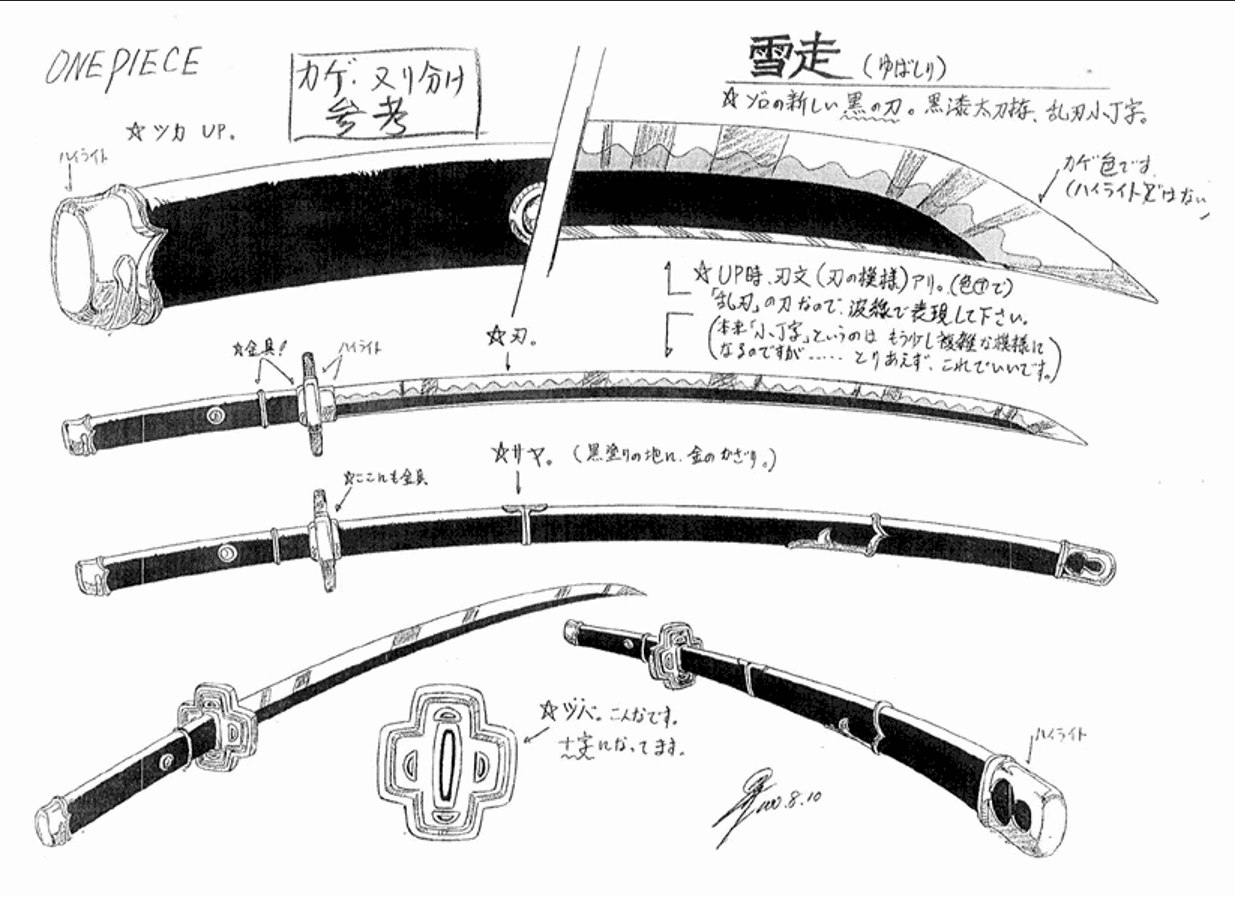 ONE PIECE
カゲ・ヌリ分け
参考
雪走 (ゆばしり)
☆ゾロの新しい黒の刀。黒漆太刀拵、乱刃小丁字。
☆ツカ UP。
ハイライト
カゲ色です。
(ハイライト色ではない)
☆UP時、刃文(刃の模様)アリ。(色①で)
「乱刃」の刀なので、波線で表現して下さい。
(本来「小丁字」というのは もう少し複雑な模様に
なるのですが…… とりあえず、これでいいです。)
☆刃。
☆金具!
ハイライト
☆サヤ。(黒塗りの地に、金のかざり。)
☆ここにも金具
☆ツバ。こんなです。
十字になってます。
ハイライト
2000.8.10